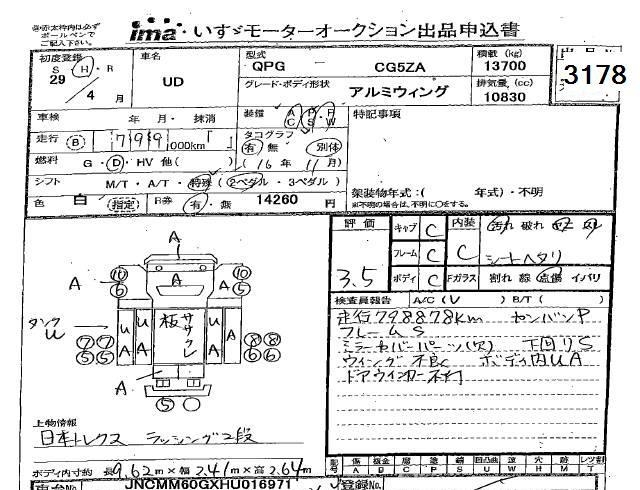 ※赤太枠内は必ず
ボールペンで
ご記入下さい。
ima いすゞモーターオークション出品申込書
初度登録 S・H・R
29 / 4 月
車名
UD
型式 QPG CG5ZA
グレード・ボディ形状 アルミウィング
積載 (kg)
13700
排気量 (cc)
10830
3178
車検 年・月・抹消
走行 B 799,000km
燃料 G・D・HV 他( )
装備 A P R C S W
タコグラフ
有 無 別体
(16年11月)
特記事項
シフト M/T・A/T・特殊 (2ペダル・3ペダル)
架装物年式:( 年式)・不明
※不明の場合は、不明に○をする。
色 白 (指定) R券 有・無 14260 円
評価 3.5
キャブ C
フレーム C
ボディ C
内装 C
汚れ 破れ
シートヘタリ
Fガラス 割れ 線 点傷 イバリ
検査員報告 A/C(V ) B/T( )
走行798878km センバンP
フレームS
ミラーカバーパーツ(欠) 下回りS
ウイング不良 ボディ内UA
ドアウインカー不灯
A
A
A
A
10
6
10
6
タンク
U
7 7
5 5
U
A
U
A
板 ササクレ
U
A
U
A
8 8
6 6
5
上物情報
日本トレクス ラッシング2段
ボディ内寸約 長9.62m×幅2.41m×高2.64m
車台No. JNCMM60GXHU016971
記号 傷 A 板金 D 腐 C 塗 P 錆 S 凹凸曲 U 波 W 穴 H 跡 M レツ割 T
登録No.